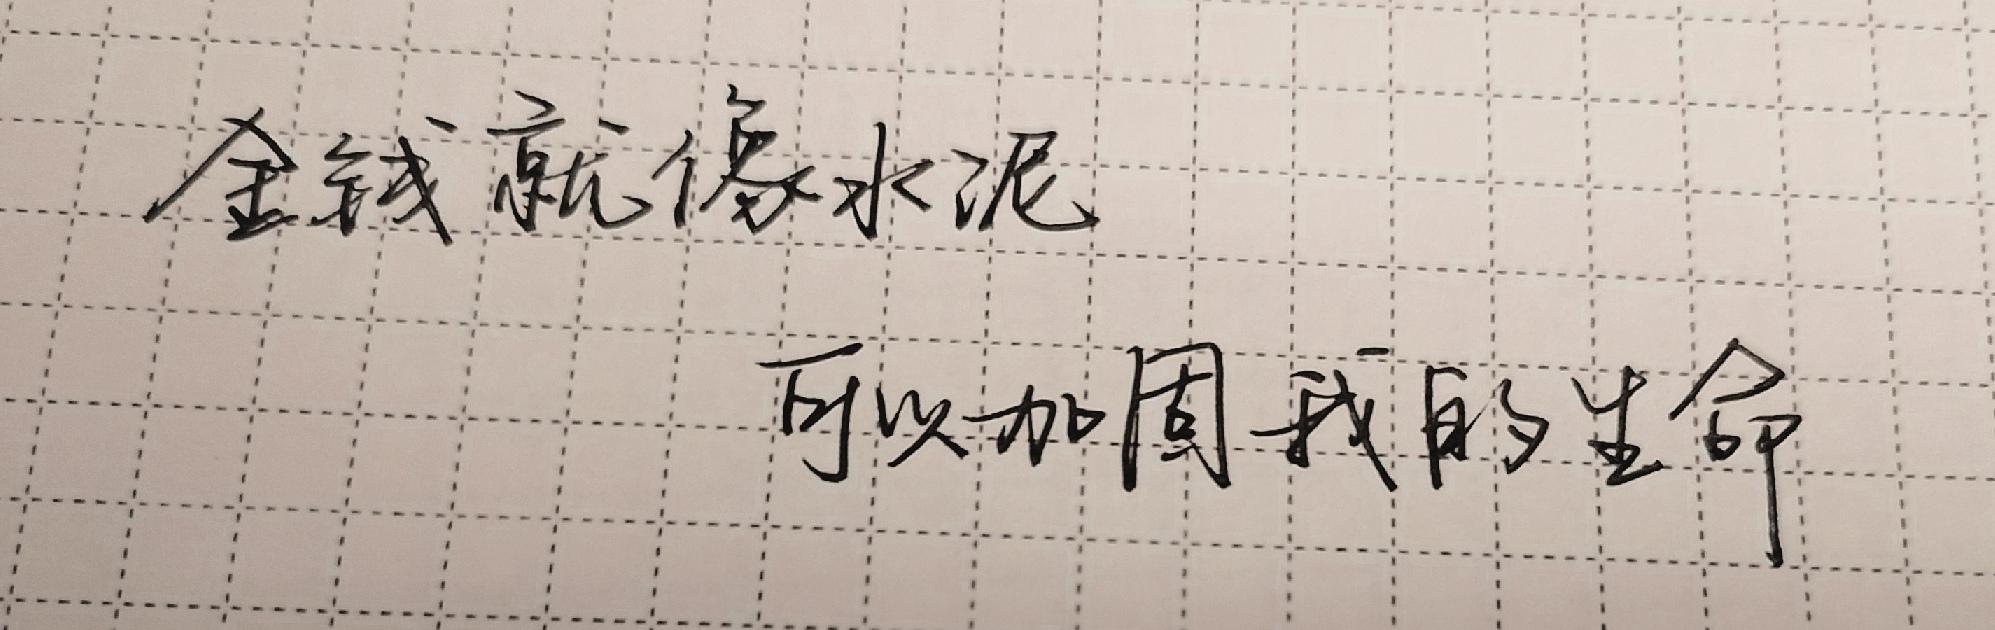 金钱就像水泥
可以加固我的生命